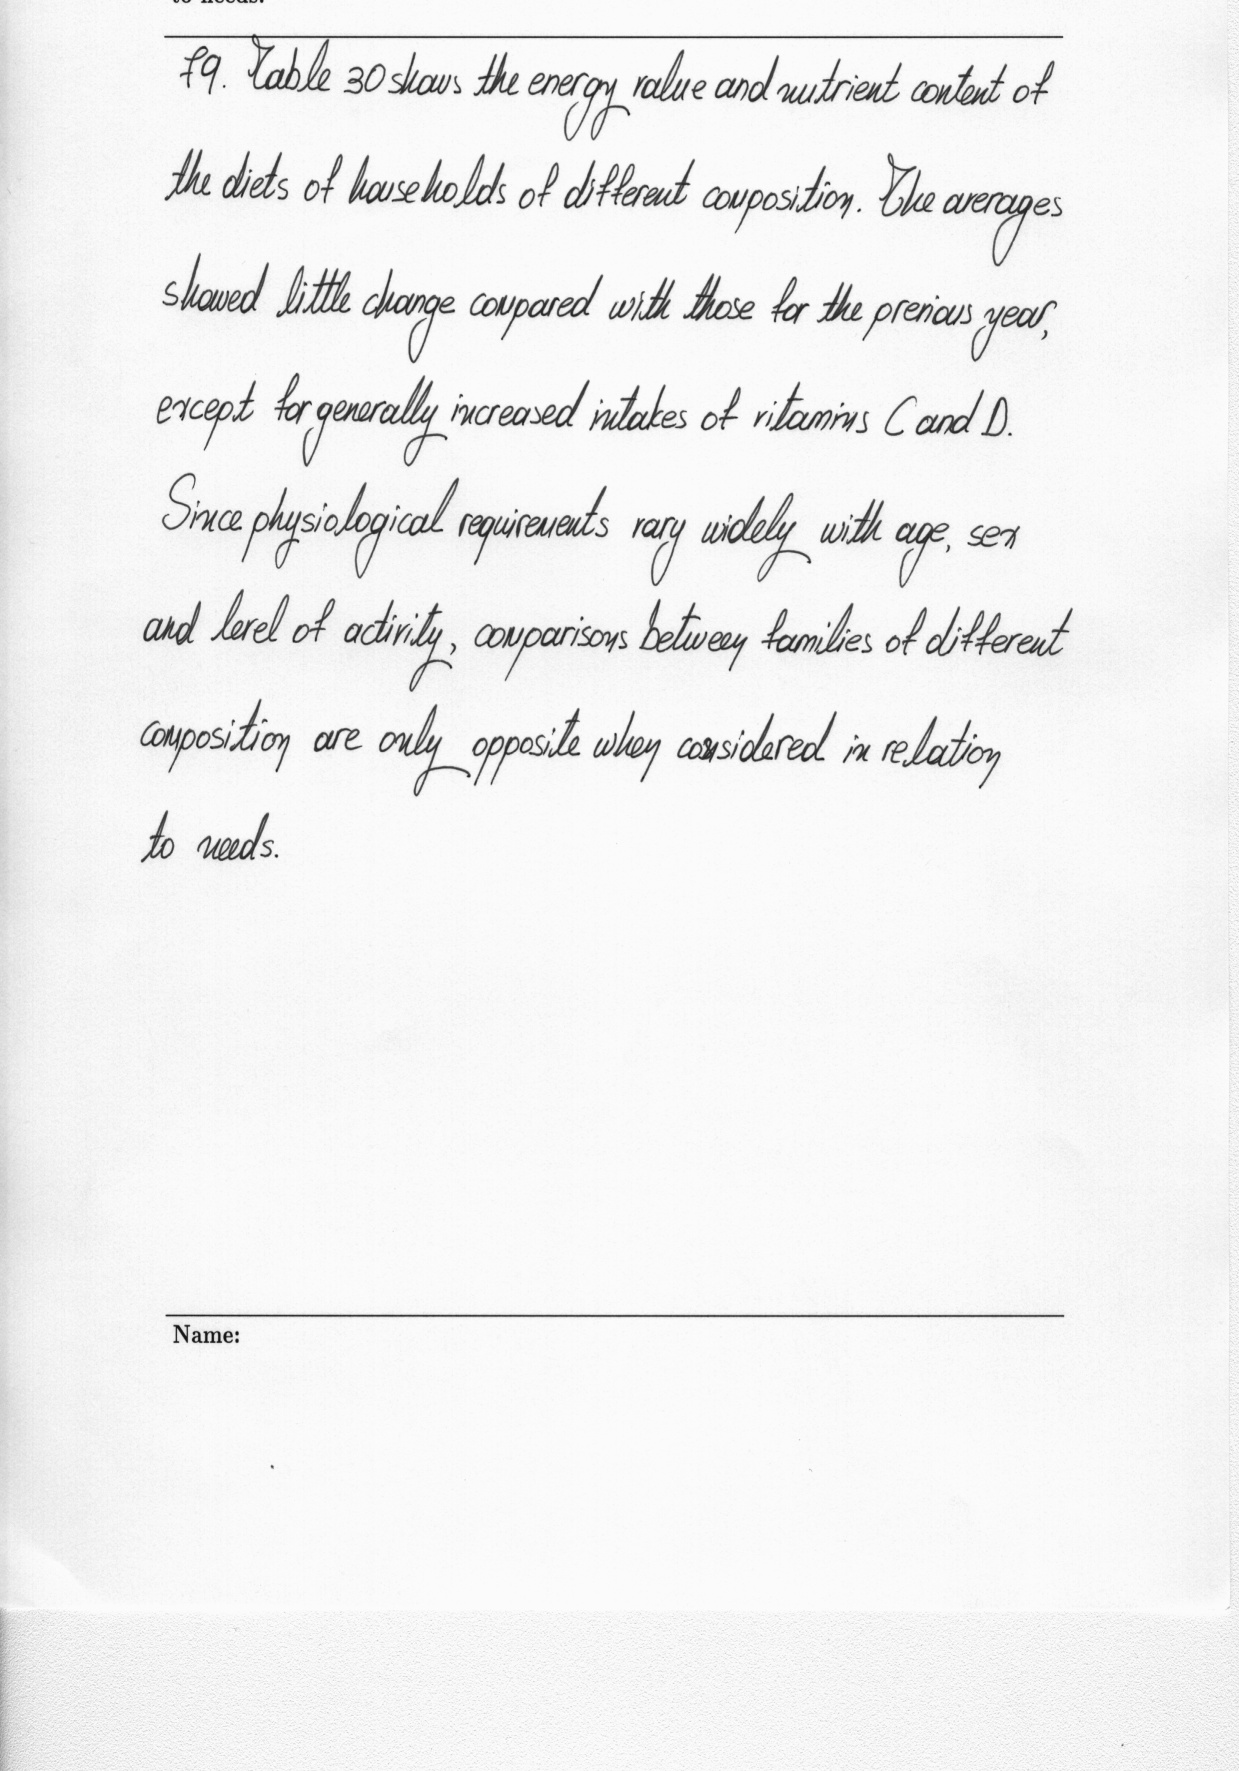 to needs.
79. Table 30 shows the energy value and nutrient content of
the diets of households of different composition. The averages
showed little change compared with those for the previous year,
except for generally increased intakes of vitamins C and D.
Since physiological requirements vary widely with age, sex
and level of activity, comparisons between families of different
composition are only opposite when considered in relation
to needs.
Name: